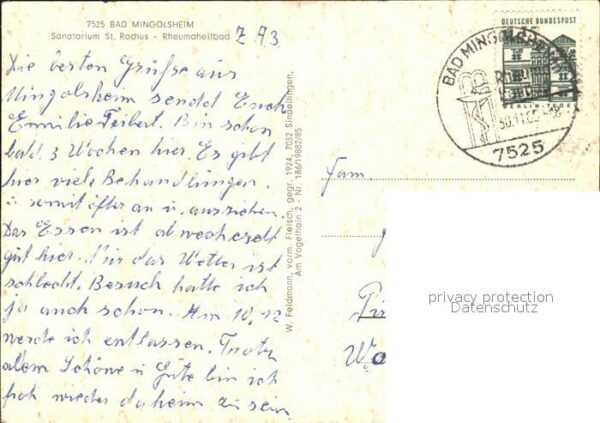 7525 BAD MINGOLSHEIM
Sanatorium St. Rochus - Rheumaheilbad
Z A3
Die besten Grüße aus
Mingolsheim sendet Euch
Emilie Seibert. Bin schon
bald 3 Wochen hier. Es gibt
hier viele Behandlungen,
u somit öfter an u. ausziehen.
Das Essen ist abwechselt
gut hier. Nur das Wetter ist
schlecht. Besuch hatte ich
ja auch schon. Am 10.12
werde ich entlassen. Trotz
allem Schöne u Gute bin ich
froh wieder daheim zu sein.
W. Feldmann, vorm. Fleisch, gegr. 1924, 7032 Sindelfingen,
Am Vogelhain 2 - Nr. 186/19882/85
DEUTSCHE BUNDESPOST
BAD MINGOLSHEIM
7525
Fam.
privacy protection
Datenschutz